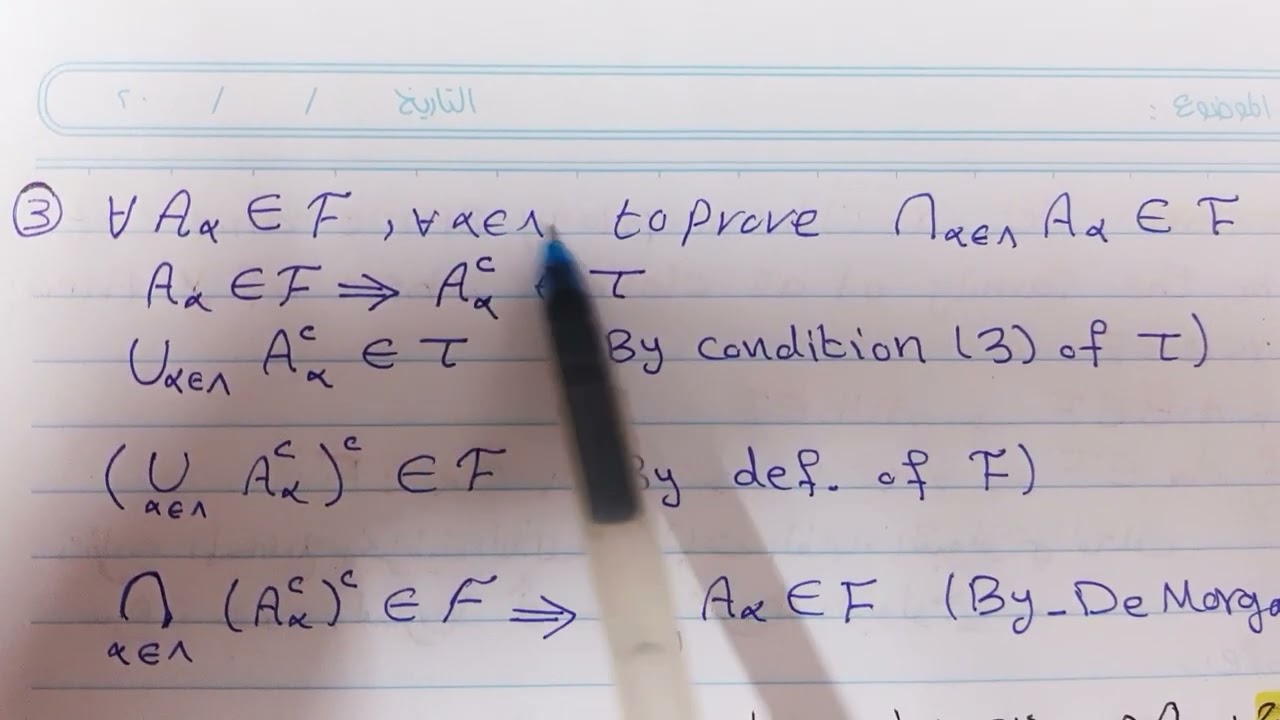 الموضوع : التاريخ / / ٢٠
③ ∀ Aα ∈ F , ∀ α∈Λ to prove ⋂α∈Λ Aα ∈ F
Aα ∈ F ⟹ Aαᶜ ∈ τ
⋃α∈Λ Aαᶜ ∈ τ By condition (3) of τ)
(⋃α∈Λ Aαᶜ)ᶜ ∈ F By def. of F)
⋂α∈Λ (Aαᶜ)ᶜ ∈ F ⟹ Aα ∈ F (By_De Morga